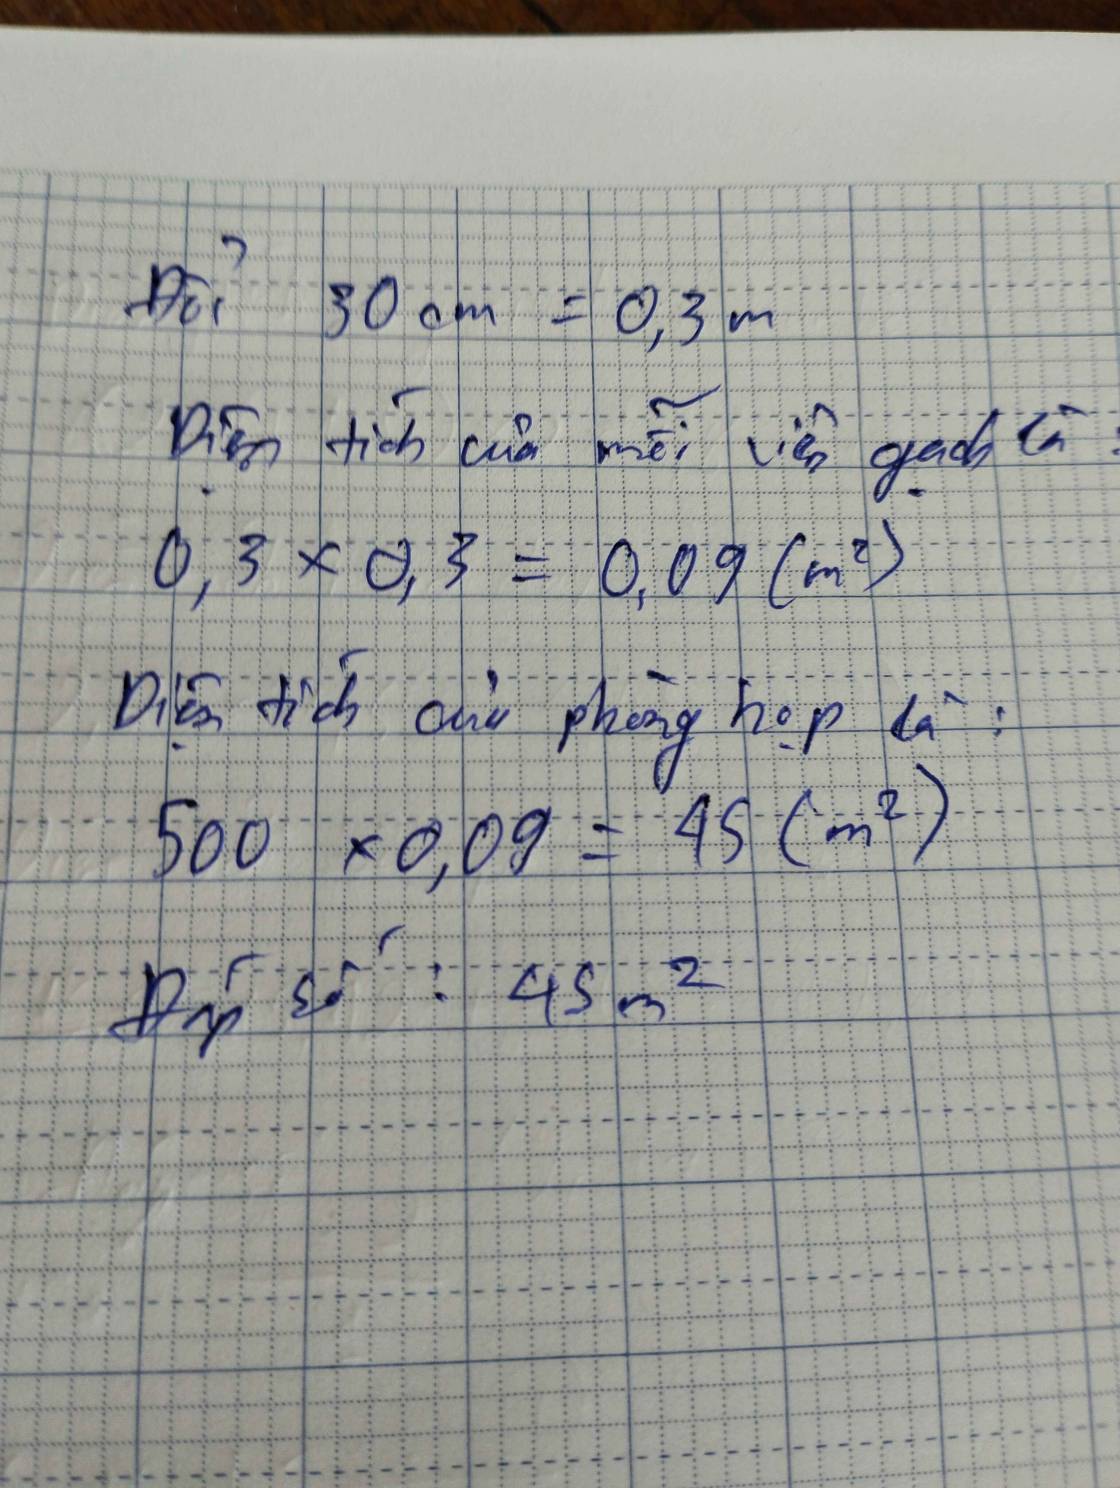 Đổi 30 cm = 0,3 m
Diện tích của mỗi viên gạch là :
0,3 × 0,3 = 0,09 (m²)
Diện tích của phòng họp là :
500 × 0,09 = 45 (m²)
Đáp số : 45 m²